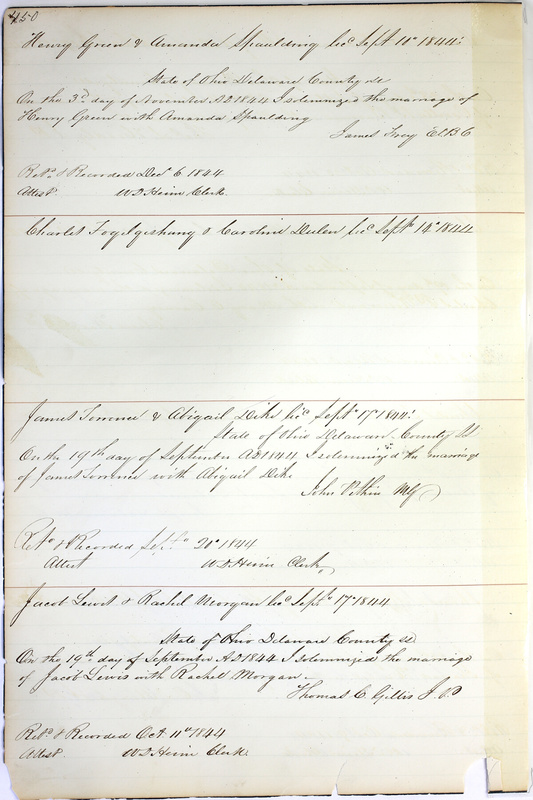 450
Henry Green & Amanda Spaulding Lic Sept 10th 1844
State of Ohio Delaware County SS
On the 3d day of November AD 1844 I solemnized the marriage of
Henry Green with Amanda Spaulding
James
Retd & Recorded Decr 6 1844
Attest W D Heim Clerk
Charles & Caroline Lic Sept 14th 1844
James Torrence & Abigail Dike Lic Sept 17th 1844
State of Ohio Delaware County SS
On the 19th day of September AD 1844 I solemnized the marriage
of James Torrence with Abigail Dike
John Pitkin MG
Retd & Recorded Sept 20th 1844
Attest W D Heim Clerk
Jacob Lewis & Rachel Morgan Lic Sept 17th 1844
State of Ohio Delaware County SS
On the 19th day of September AD 1844 I solemnized the marriage
of Jacob Lewis with Rachel Morgan
Thomas C. Gillis J.P.
Retd & Recorded Oct 11th 1844
Attest W D Heim Clerk